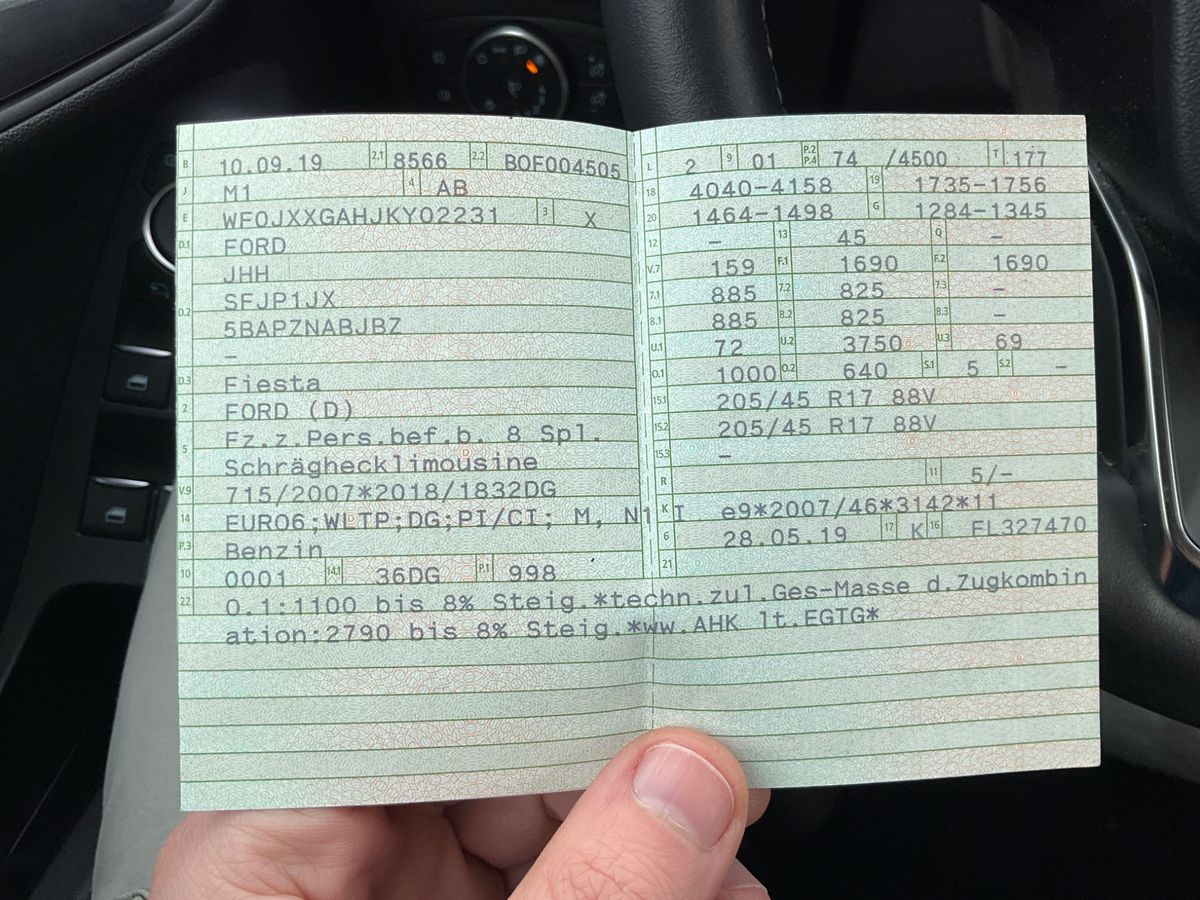 B 10.09.19 2.1 8566 2.2 BOF004505
J M1 4 AB
E WF0JXXGAHJKY02231 3 X
D.1 FORD
JHH
D.2 SFJP1JX
5BAPZNABJBZ
–
D.3 Fiesta
2 FORD (D)
5 Fz.z.Pers.bef.b. 8 Spl.
Schräghecklimousine
V.9 715/2007*2018/1832DG
14 EURO6;WLTP;DG;PI/CI; M, N1 I
P.3 Benzin
10 0001 14.1 36DG P.1 998
L 2 9 01 P.2 P.4 74 /4500 T 177
18 4040-4158 19 1735-1756
20 1464-1498 G 1284-1345
12 – 13 45 Q –
V.7 159 F.1 1690 F.2 1690
7.1 885 7.2 825 7.3 –
8.1 885 8.2 825 8.3 –
U.1 72 U.2 3750 U.3 69
O.1 1000 O.2 640 S.1 5 S.2 –
15.1 205/45 R17 88V
15.2 205/45 R17 88V
15.3 –
R 11 5/–
K e9*2007/46*3142*11
6 28.05.19 17 K 16 FL327470
21
22 O.1:1100 bis 8% Steig.*techn.zul.Ges-Masse d.Zugkombin
ation:2790 bis 8% Steig.*ww.AHK lt.EGTG*